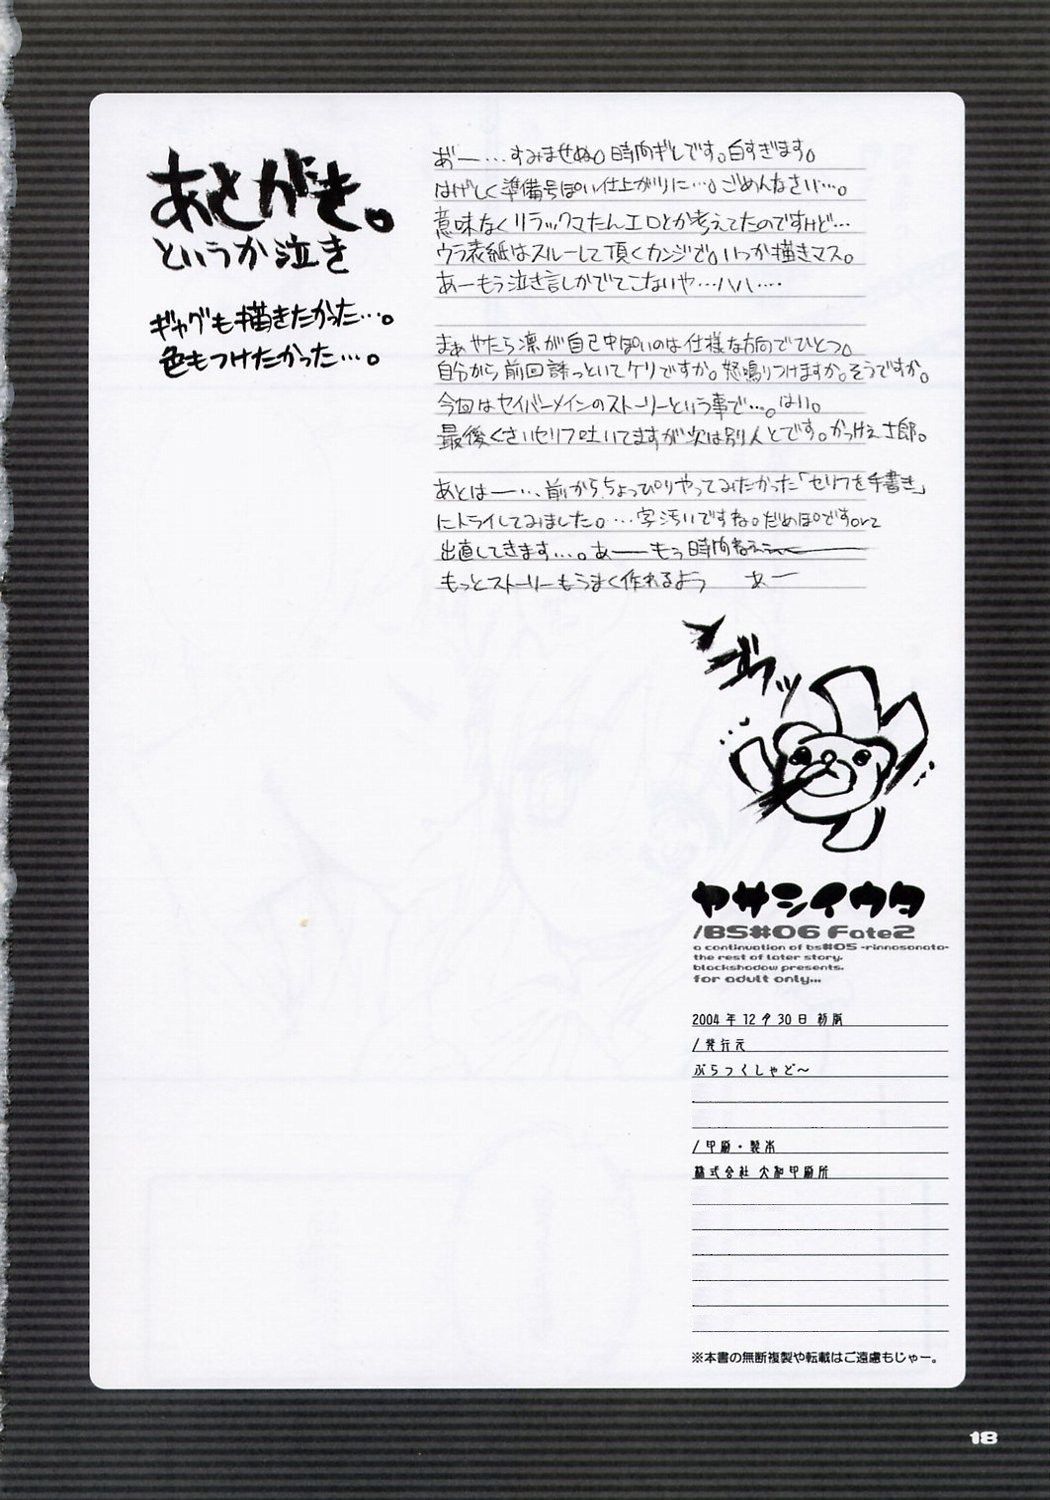 あとがき。
というか泣き
ギャグも描きたかった…。
色もつけたかった…。
あ゛ー…すみませぬ。時間ギレです。白すぎます。
はげしく準備号ぽい仕上がりに…。ごめんなさい…。
意味なくリラックマたんエロとか考えてたのですけど…
ウラ表紙はスルーして頂くカンジで。いつか描きマス。
あーもう泣き言しかでてこないや…ハハ….
まぁやたら凛が自己中ぽいのは仕様な方向でひとつ。
自分から前回誘っといてケリですか。怒鳴りつけますか。そうですか。
今回はセイバーメインのストーリーという事で…。はい。
最後くさいセリフ吐いてますが次は別人とです。かっけぇ士郎。
あとはー…、前からちょっぴりやってみたかった「セリフを手書き」
にトライしてみました。…字汚いですね。だめぽですorz
出直してきます…。あーもう時間ねぇー
もっとストーリーもうまく作れるよう あー
ヤサシイウタ
/BS#06 Fate2
a continuation of bs#05 -rinnosonata-
the rest of later story.
blackshadow presents.
for adult only...
2004年12月30日 初版
/発行元
ぶらっくしゃど～
/印刷・製本
株式会社 大和印刷所
※本書の無断複製や転載はご遠慮もじゃー。
18